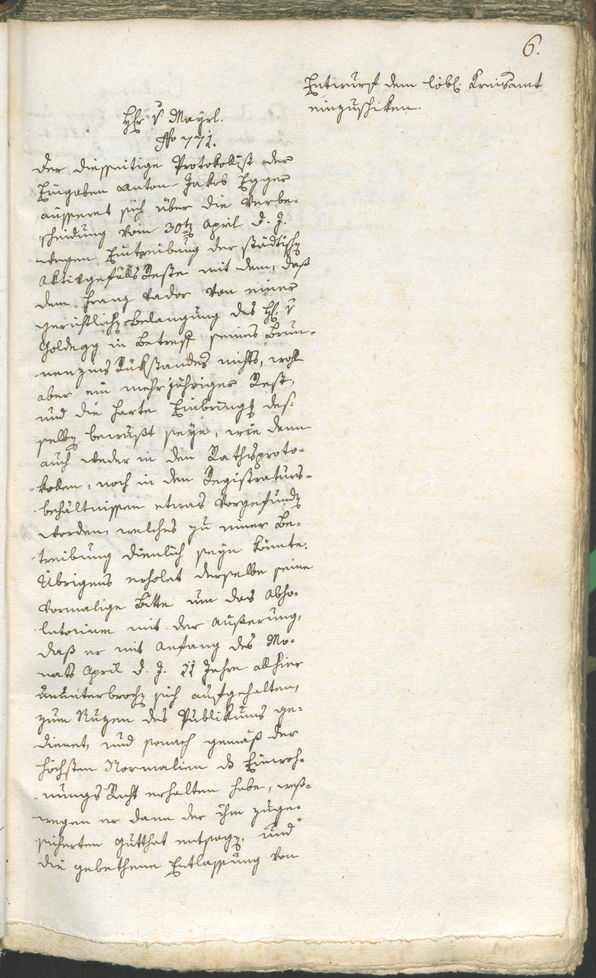 6.
Entwurf dem löbl. Kreisamt
einzuschiken.
H. v Mayrl.
No 771.
Der diesseitige Protokollist der
Eingaben Anton Jakob Egger
äussert sich über die Verbe-
scheidung vom 30ten April d. J.
wegen Eintreibung der städtischen
Aktivgefälls Reste mit dem, daß
dem Franz Vador von einer
gerichtlichen Belangung des H. v
Goldegg in Betreff seines Brun-
nenzins Rükstandes nichts, wohl
aber ein mehrjähriger Rest,
und die harte Einbringung des-
selben bewußt seye, wie denn
auch weder in den Rathsproto-
kollen, noch in den Registraturs-
behältnissen etwas vorgefunden
worden, welches zu einer Be-
treibung dienlich seyn könnte.
Übrigens erholet derselbe seine
vormalige Bitte um das Abso-
lutorium mit der Äußerung,
daß er mit Anfang des Mo-
nats April d. J. 11 Jahre allhier
ununterbrochen sich aufgehalten,
zum Nuzen des Publikums ge-
dienet, und sonach gemäß der
höchsten Normalien das Einwoh-
nungs Recht erhalten habe, weß-
wegen er dann der ihm zuge-
sicherten Gutthat entsage, und
die gebethene Entlassung von